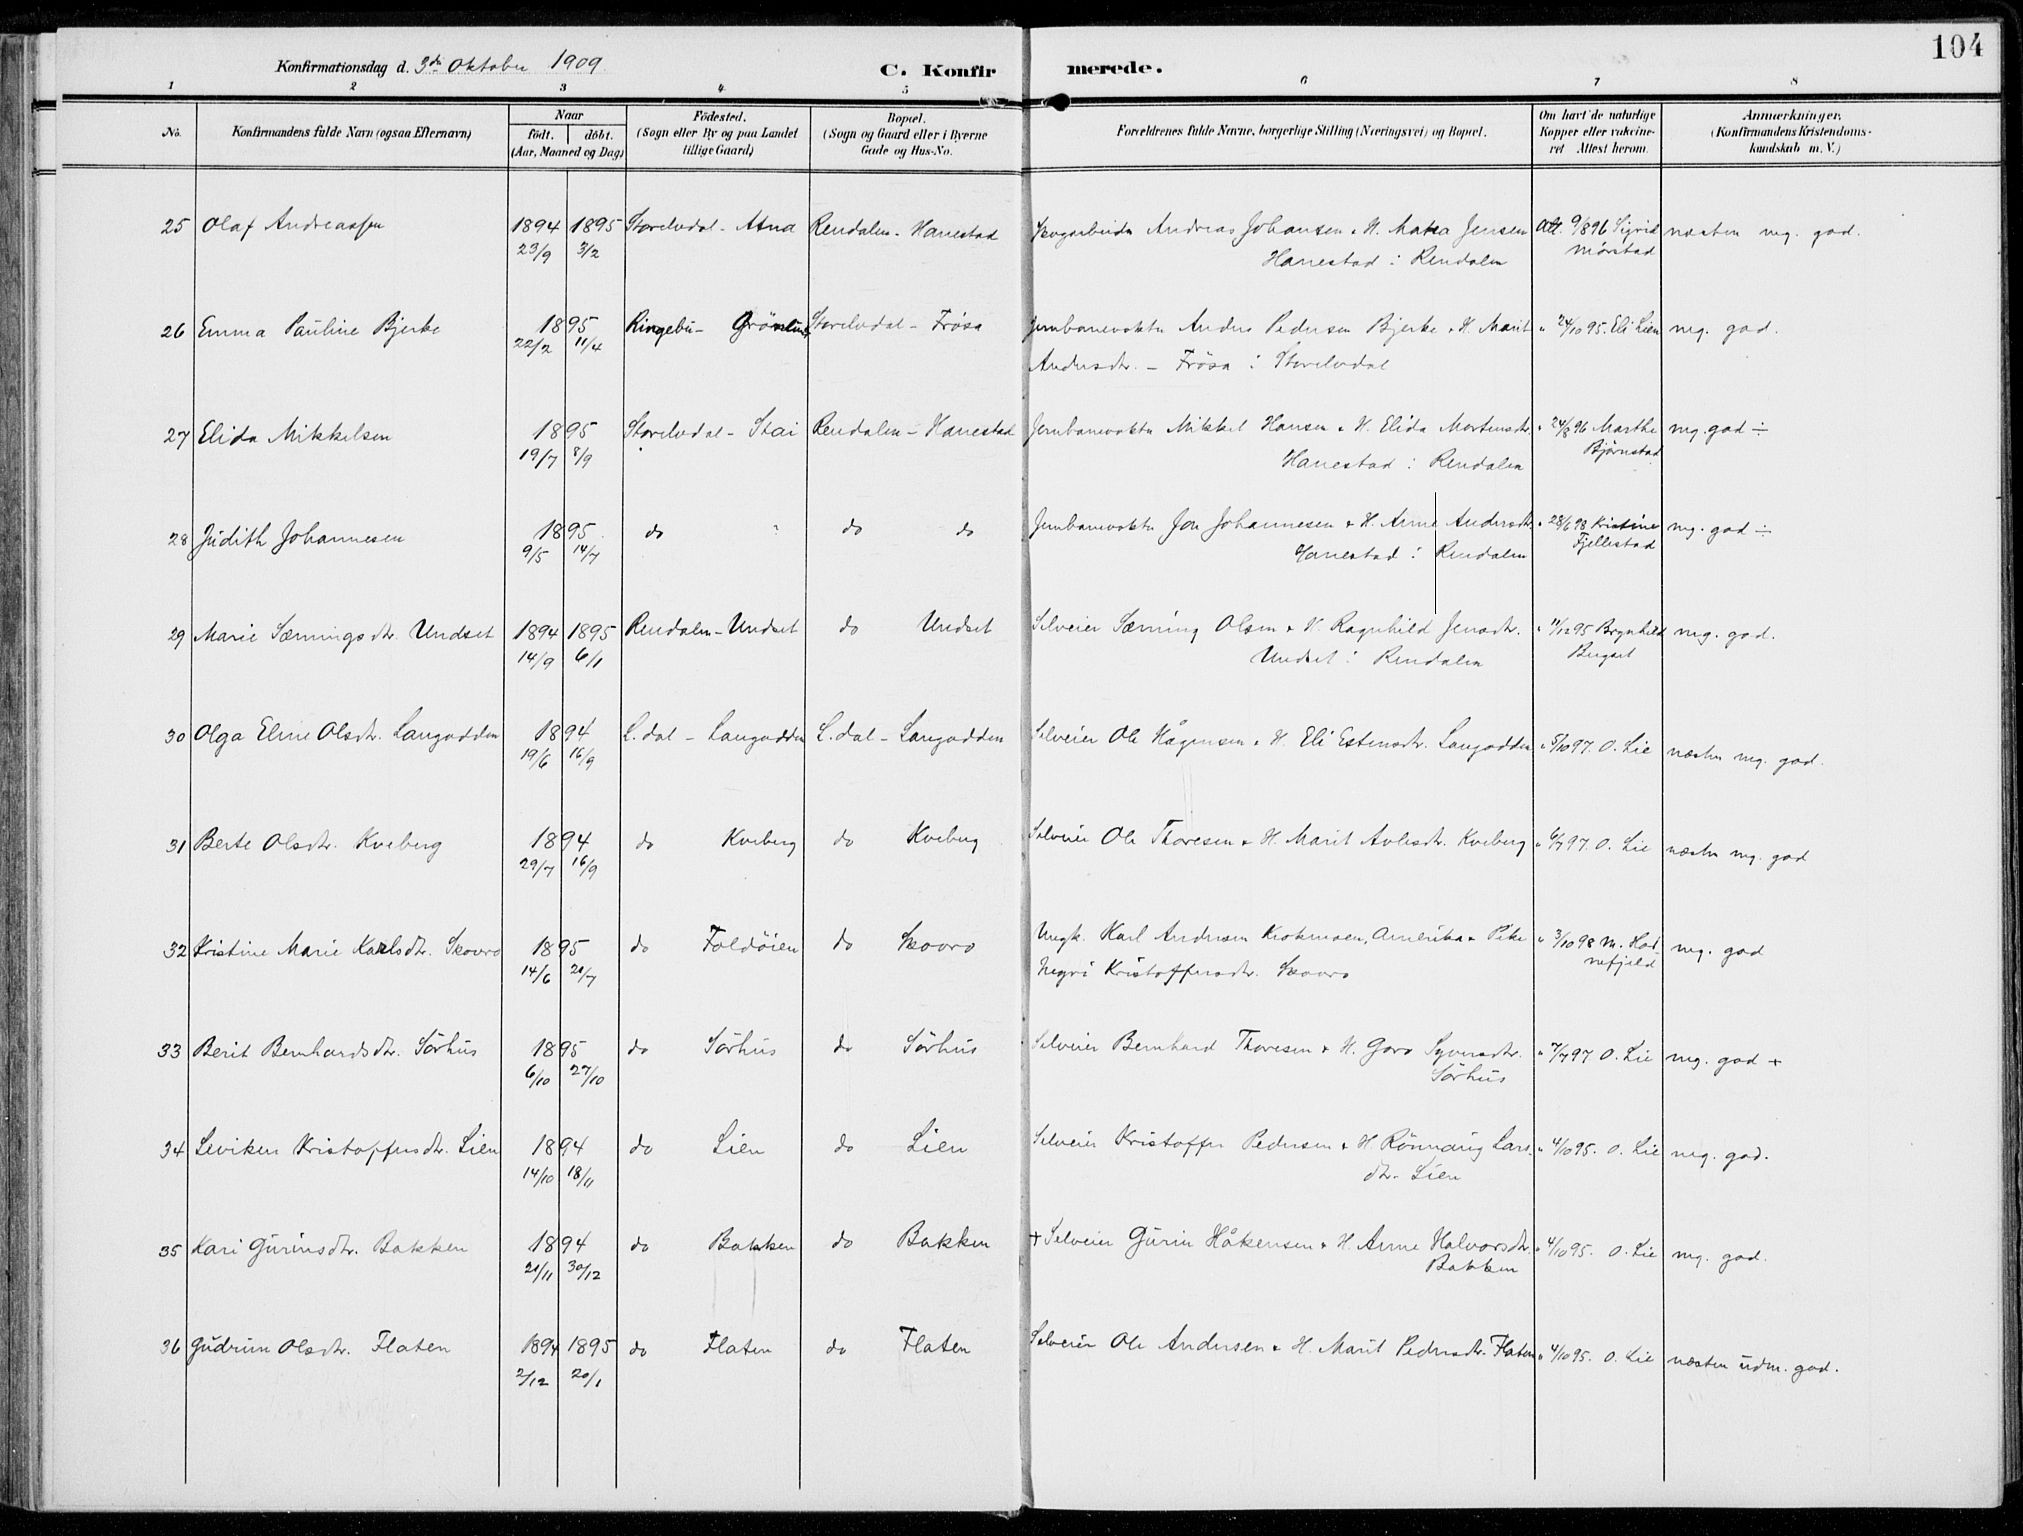 104
Konfirmationsdag d. 3die Oktober 1909.
C. Konfirmerede.
1 2 3 4 5 6 7 8
No. Konfirmandens fulde Navn (ogsaa Efternavn) Naar födt. döbt. (Aar, Maaned og Dag) Födested. (Sogn eller By og paa Landet tillige Gaard) Bopæl. (Sogn og Gaard eller i Byerne Gade og Hus-No. Forældrenes fulde Navne, borgerlige Stilling (Næringsvei) og Bopæl. Om havt de naturlige Kopper eller vakcineret Attest herom. Anmærkninger, (Konfirmandens Kristendomskundskab m. V.)
25 Olaf Andreassen 1894 1895 Storelvdal - Atna Rendalen - Hanestad Skogarbeider Andreas Johansen & H. Matea Jensen Att. 9/8 96 Sigrid næsten meg. god.
23/9 3/2 Hanestad i Rendalen Mørstad
26 Emma Pauline Bjerke 1895 Ringebu - Storelvdal - Frösa Jernbanevokter Anders Pedersen Bjerke & H. Marit " 24/10 95. Eli Lien meg. god.
22/2 11/4 Andersdtr. - Frösa i Storelvdal
27 Elida Mikkelsen 1895 Storelvdal - Stai Rendalen - Hanestad Jernbanevokter Mikkel Hansen & H. Elida Mortensdtr. " 24/8 96 Marthe meg. god ÷
19/7 8/9 Hanestad i Rendalen Bjørnstad
28 Judith Johannesen 1895 do " do do Jernbanevokter Jon Johannesen & H. Anne Andersdtr. " 28/6 98 Kristine meg. god ÷
9/5 14/7 Hanestad i Rendalen Fjellestad
29 Marie Sæmingsdtr. Undset 1894 1895 Rendalen - Undset do Undset Selveier Sæming Olsen & H. Ragnhild Jensdtr. " 11/12 95 Brynhild meg. god.
14/9 6/1 Undset i Rendalen Bergset
30 Olga Eline Olsdtr. Langodden 1894 L.dal - Langodden L.dal - Langodden Selveier Ole Hågensen & H. Eli Estensdtr. Langodden " 5/10 97. O. Lie næsten meg. god.
19/6 16/9
31 Berte Olsdtr. Kveberg 1894 do Kveberg do Kveberg Selveier Ole Thoresen & H. Marit Kveberg " 6/7 97. O. Lie næsten meg. god
29/7 16/9
32 Kristine Marie Karlsdtr. Skovro 1895 do Foldöien do Skovro Ungk. Karl Andersen Krokmoen, Amerika & Pike " 3/10 98 M. meg. god
14/6 21/7 Ingri Kristoffersdtr. Skovro
33 Berit Bernhardsdtr. Sörhus 1895 do Sörhus do Sörhus Selveier Bernhard Thoresen & H. Goro Syversdtr. " 7/7 97 O. Lie meg. god +
6/10 27/10 Sörhus
34 Leviken Kristoffersdtr. Lien 1894 do Lien do Lien Selveier Kristoffer Pedersen & H. Rönnaug Lars- " 4/10 95. O. Lie meg. god.
14/10 18/11 dtr. Lien
35 Kari Gurinsdtr. Bakken 1894 do Bakken do Bakken + Selveier Gurin Håkensen & H. Anne Halvorsdtr. " 4/10 95. O. Lie meg. god.
21/11 30/12 Bakken
36 Gudrun Olsdtr. Flaten 1894 1895 do Flaten do Flaten Selveier Ole Andersen & H. Marit Pedersdtr. Flaten " 4/10 95. O. Lie næsten udm. god.
2/12 20/1